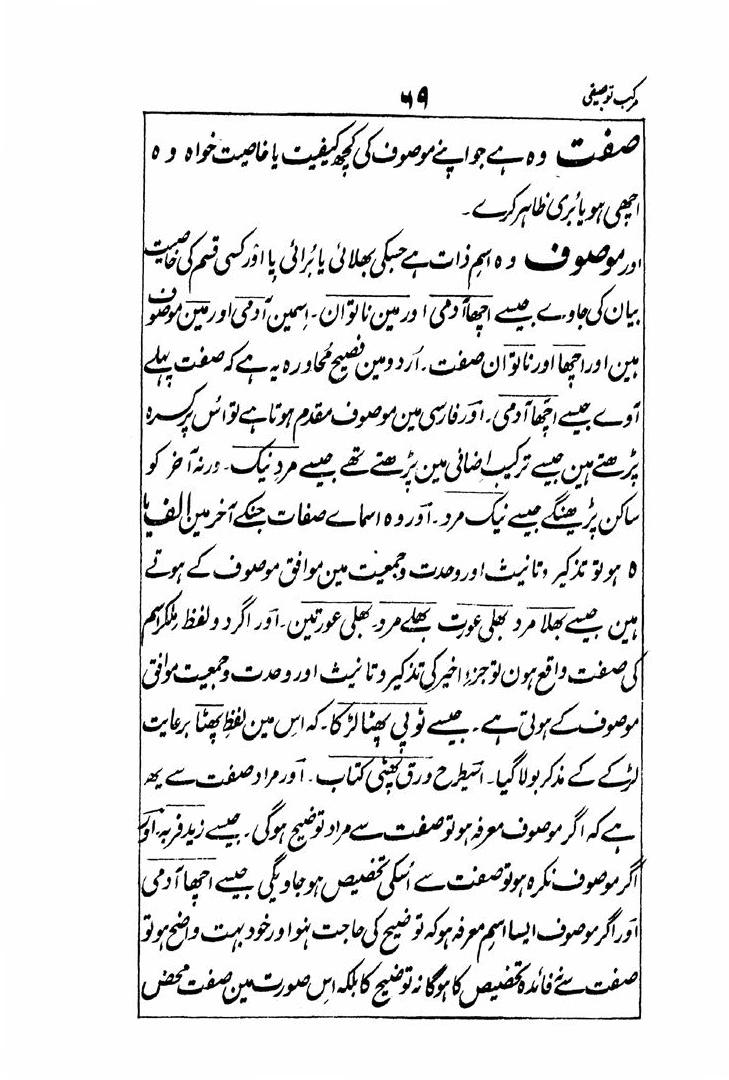 مرکب توصیفی ۶۹
صفت وہ ہے جو اپنے موصوف کی کچھ کیفیت یا خاصیت خواہ وہ
اچھی ہو یا بُری ظاہر کرے۔
اور موصوف وہ اسم ذات ہے جسکی بھلائی یا بُرائی یا اَور کسی قسم کی خاصیت
بیان کی جاوے جیسے اچھا آدمی اور مین ناتوان۔ اِسمین آدمی اور مین موصوف
ہین اور اچھا اور ناتوان صفت۔ اُردو مین فصیح مُحاورہ یہ ہے کہ صفت پہلے
آوے جیسے اچھا آدمی۔ اَور فارسی مین موصوف مقدم ہوتا ہے تو اُس پر کسرہ
پڑھتے ہین جیسے ترکیب اضافی مین پڑھتے تھے جیسے مردِ نیک۔ ورنہ آخر کو
ساکن پڑھینگے جیسے نیک مرد۔ اَور وہ اسماے صفات جنکے آخر مین الف یا
ہ ہو تو تذکیر و تانیث اور وحدت و جمعیت مین موافق موصوف کے ہوتے
ہین جیسے بھلا مرد بھلی عورت بھلے مرد۔ بھلی عورتین۔ اَور اگر دو لفظ ملکر اسم
کی صفت واقع ہون تو جزءِ اخیر کی تذکیر و تانیث اور وحدت و جمعیت موافق
موصوف کے ہوتی ہے۔ جیسے ٹوپی پھٹا لڑکا۔ کہ اس مین لفظِ پھٹا برعایت
لڑکے کے مذکر بولا گیا۔ اسیطرح ورق پھٹی کتاب۔ اَور مراد صفت سے یہ
ہے کہ اگر موصوف معرفہ ہو تو صفت سے مراد توضیح ہوگی۔ جیسے زید فربہ۔ اَور
اگر موصوف نکرہ ہو تو صفت سے اُسکی تخصیص ہو جاویگی جیسے اچھا آدمی
اَور اگر موصوف ایسا اسم معرفہ ہو کہ توضیح کی حاجت نہو اور خود بہت واضح ہو تو
صفت سے نہ فائدہ تخصیص کا ہوگا نہ توضیح کا بلکہ اس صورت مین صفت محض